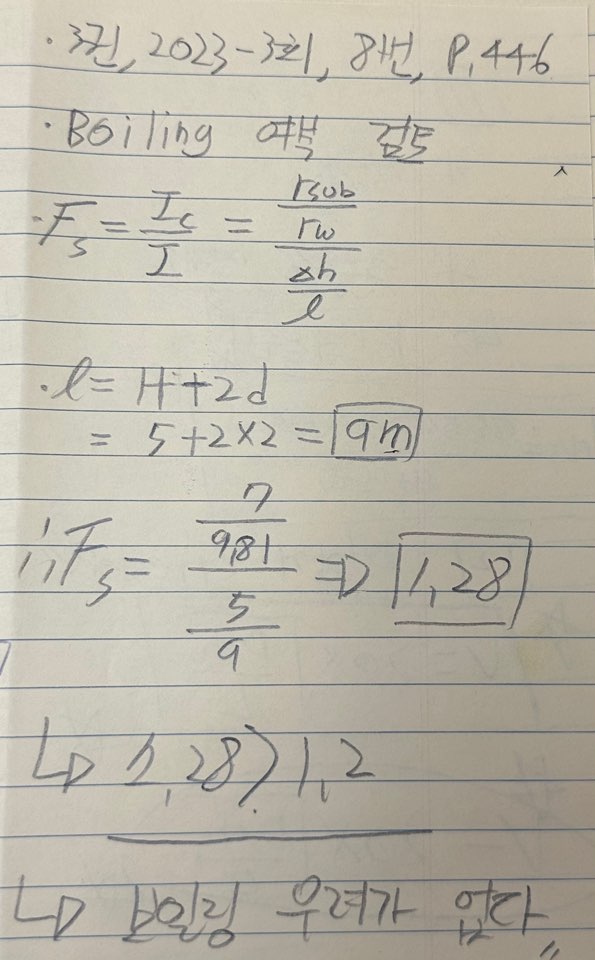 · 3권, 2023-3회, 8번, P.446
· Boiling 여부 검토
· Fs = Ic/I = (rsub/rw)/(Δh/l)
· l = H+2d
= 5+2×2 = 9m
∴ Fs = (7/9.81)/(5/9) ⇒ 1.28
↳ 1.28 > 1.2
↳ 보일링 우려가 없다〃